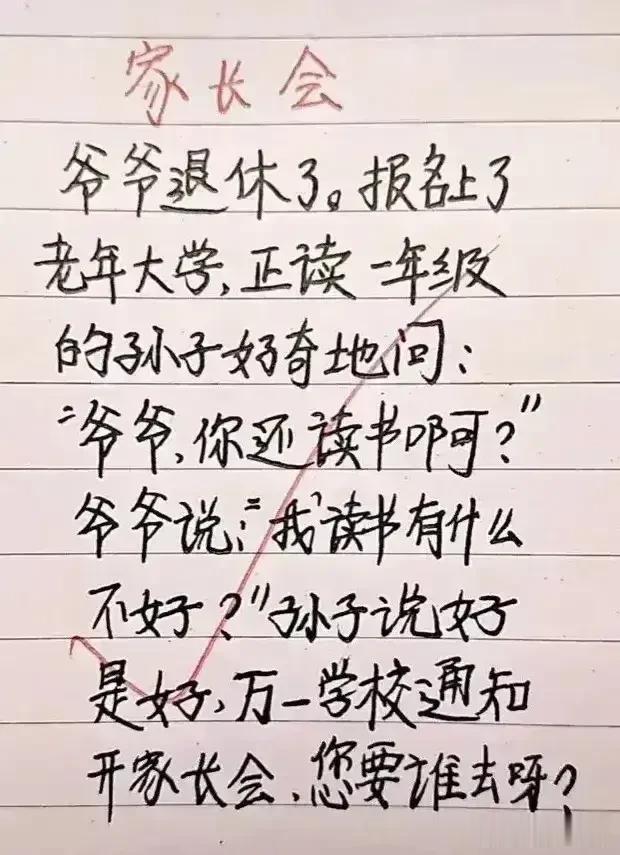 家长会
爷爷退休了。报名上了
老年大学,正读一年级
的孙子好奇地问:
“爷爷,你还读书啊?”
爷爷说:“我读书有什么
不好?”孙子说好
是好,万一学校通知
开家长会,您要谁去呀?